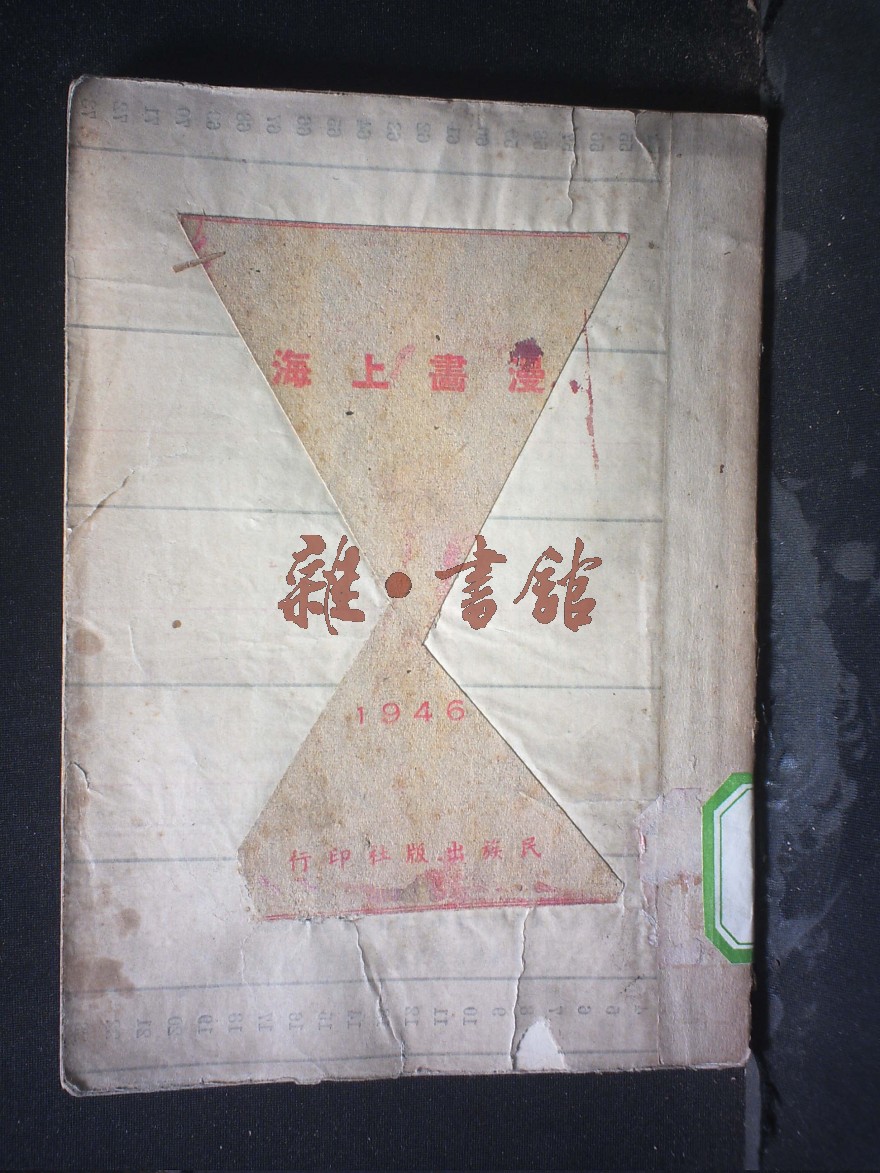 漫畫上海
雜·書館
1946
民族出版社印行